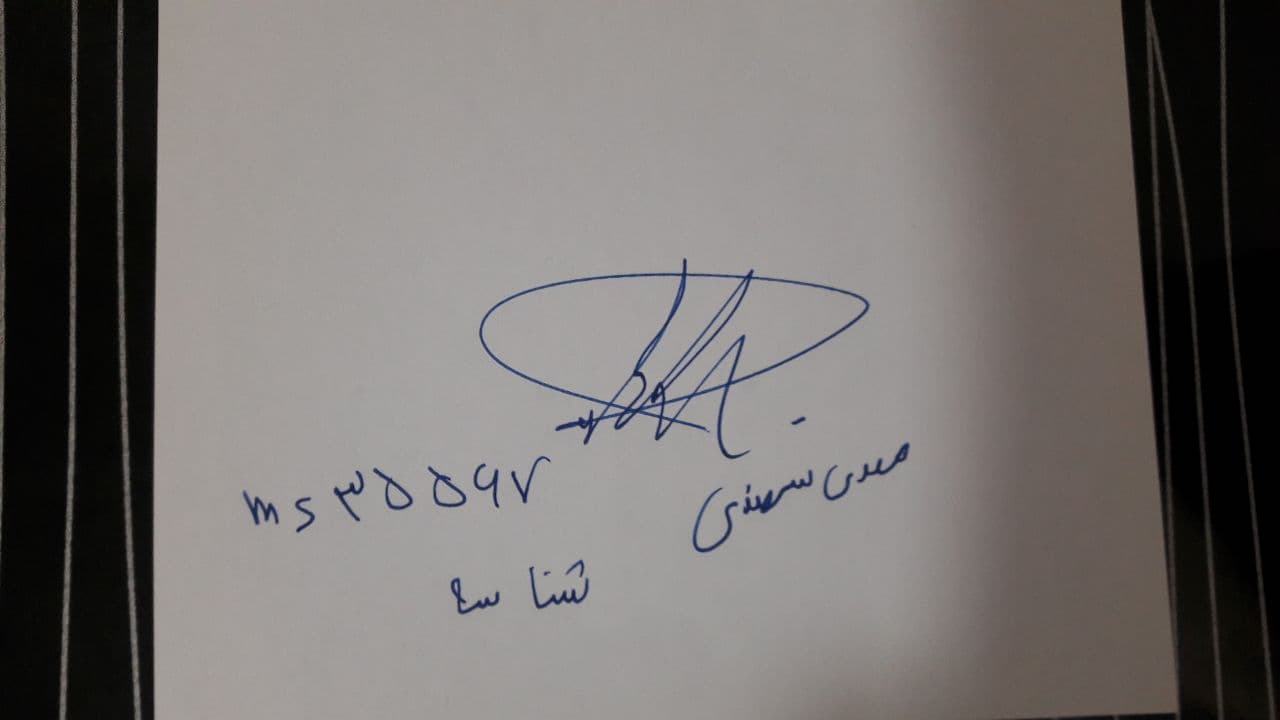 مهدی سهندی
ms ۳۵۵۶۷
شناسه